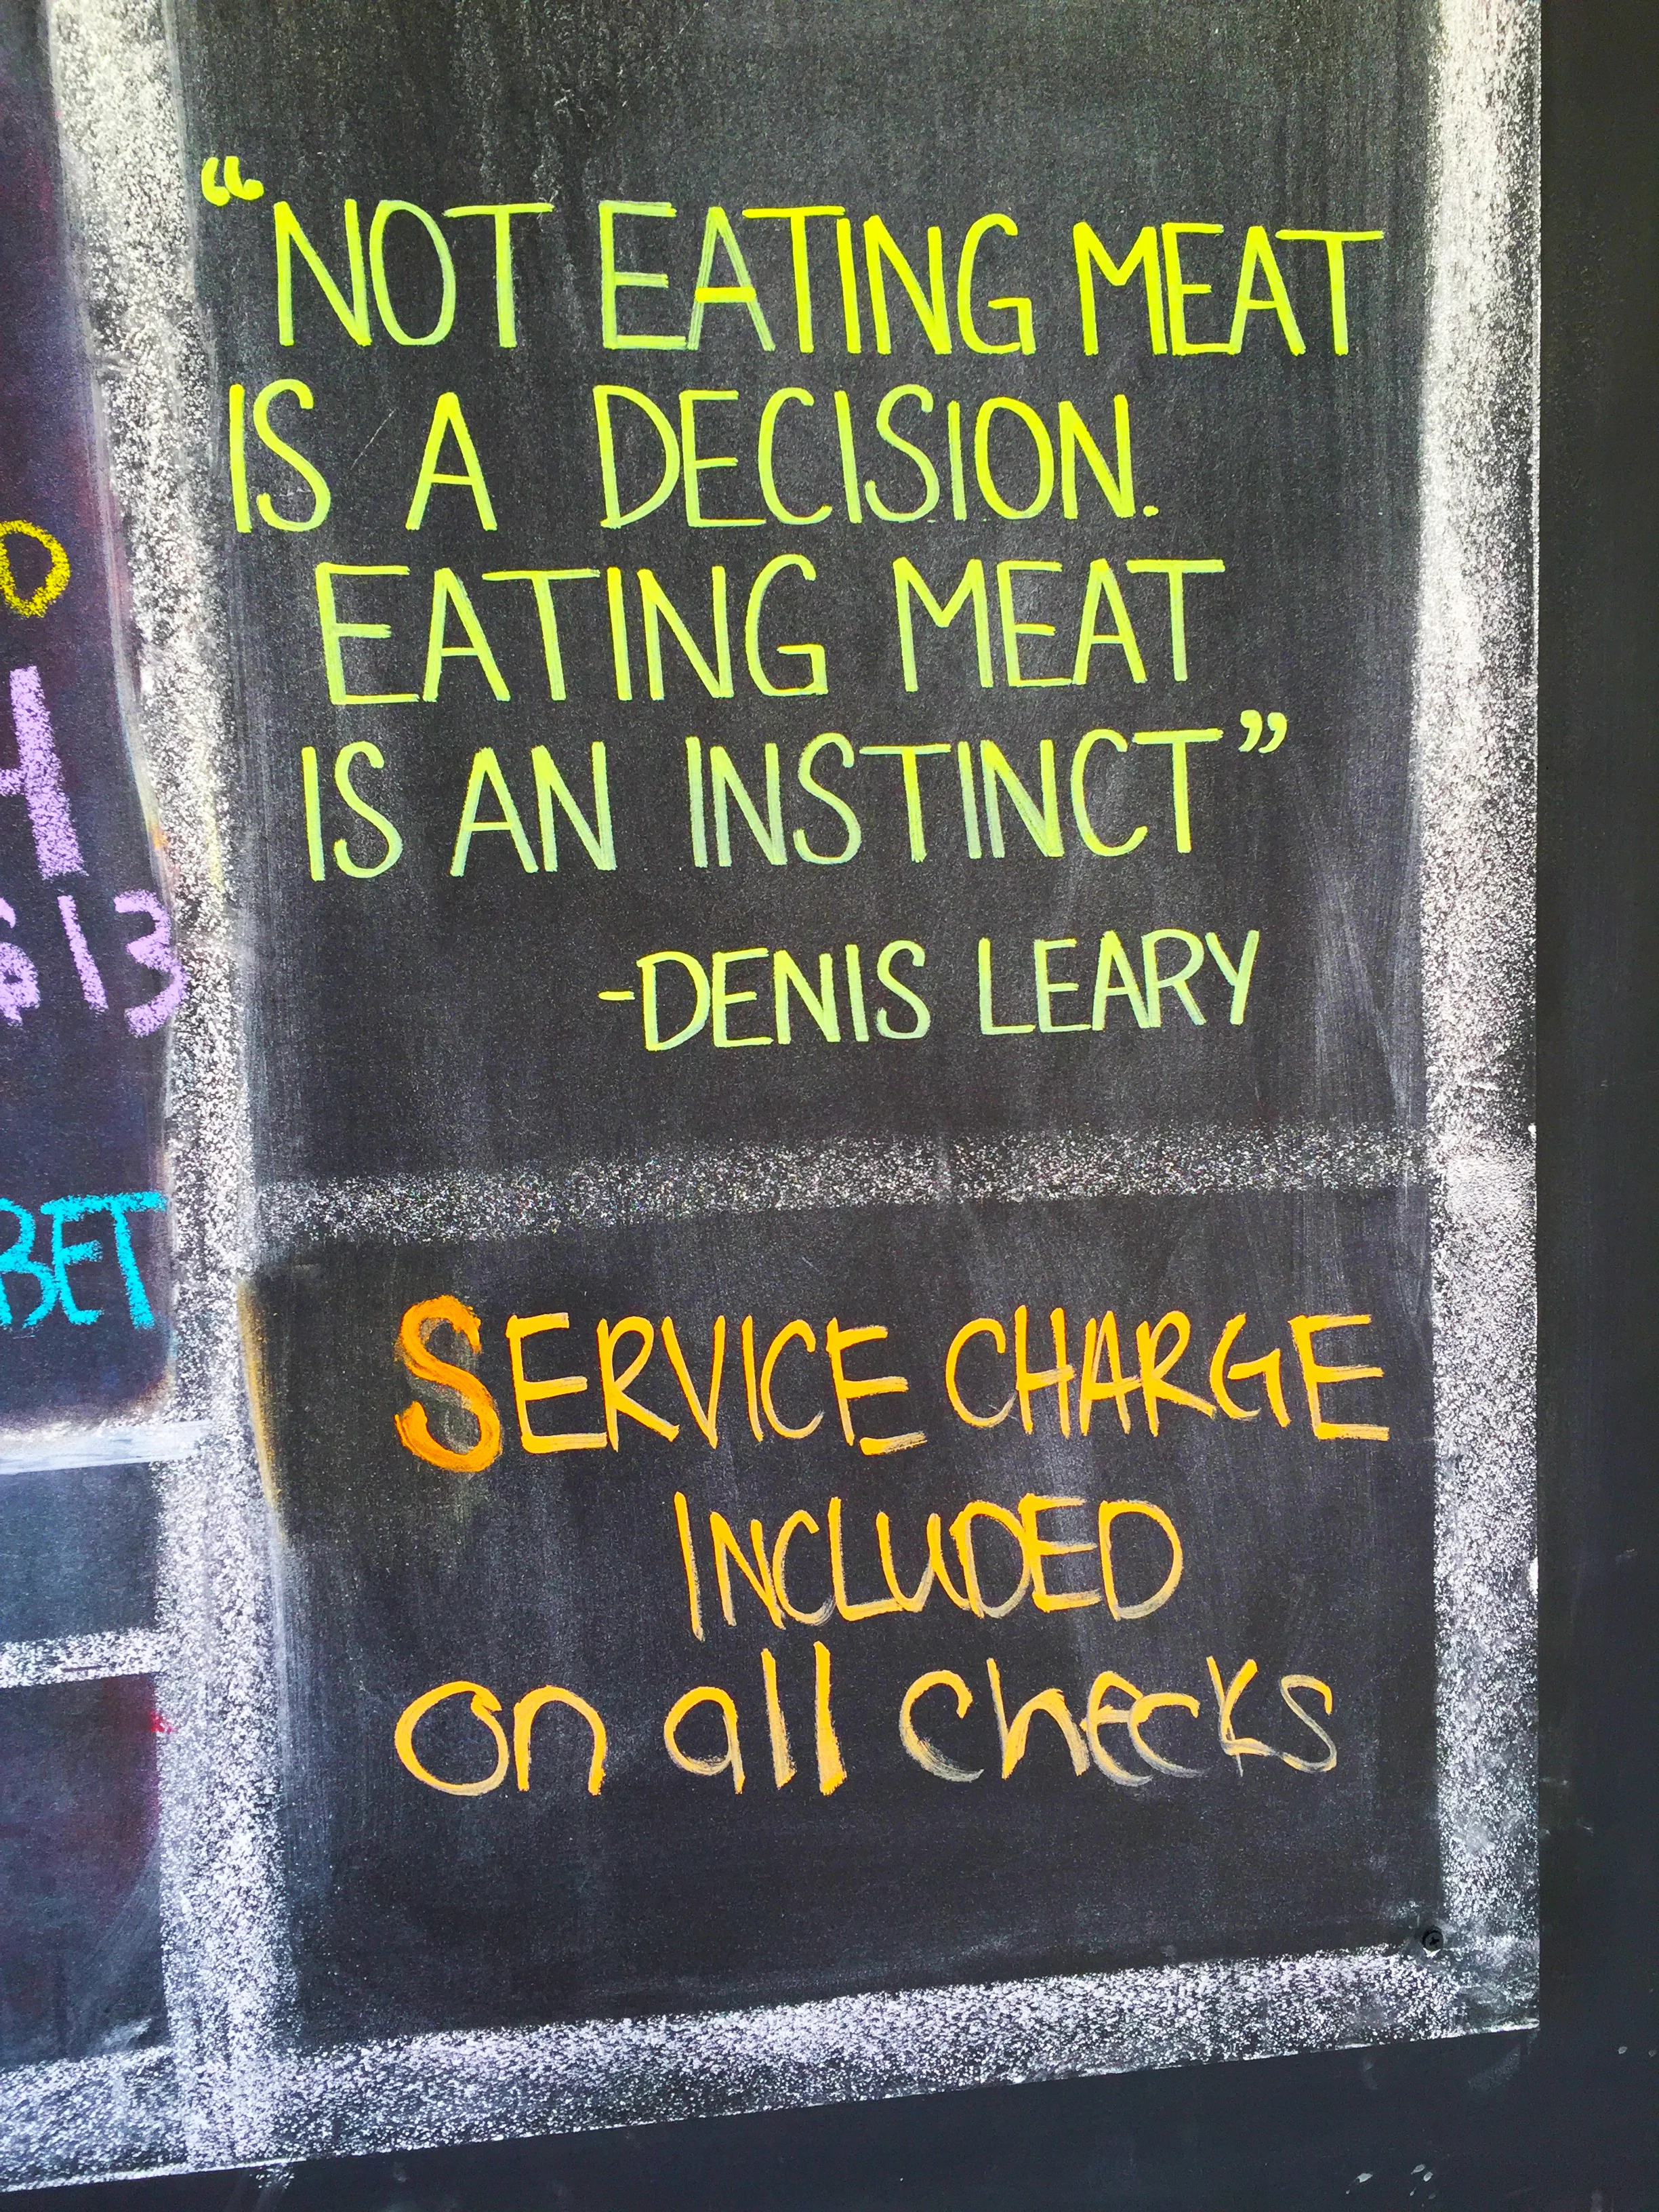 “NOT EATING MEAT
IS A DECISION.
EATING MEAT
IS AN INSTINCT”
-DENIS LEARY
SERVICE CHARGE
INCLUDED
on all checks
613
BET